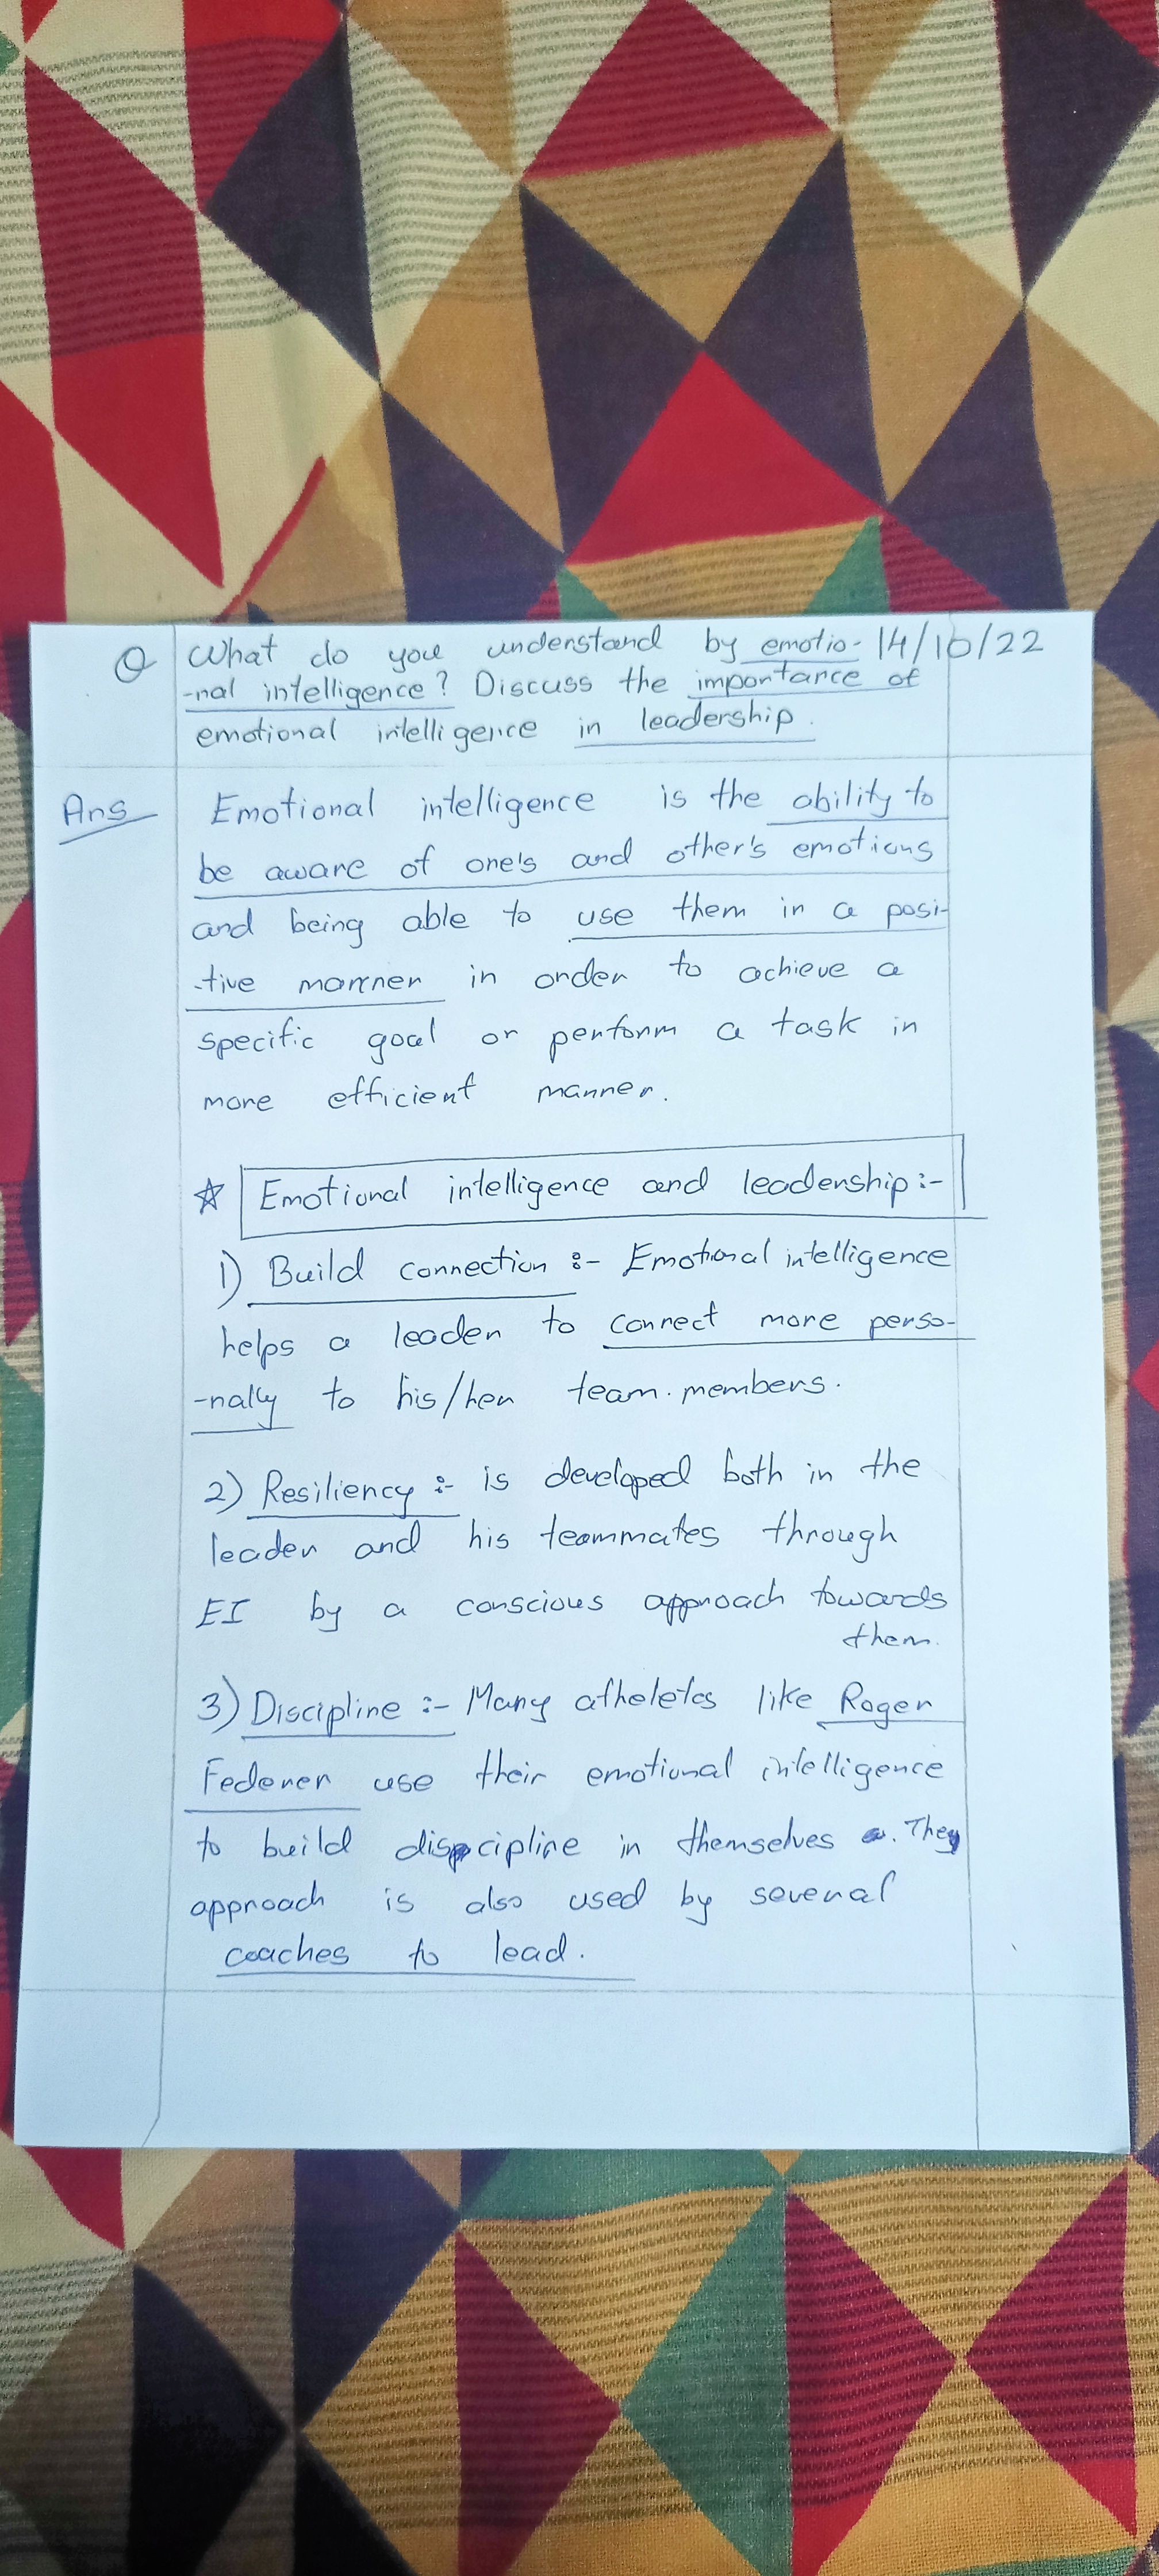 Q What do you understand by emotio- 14/10/22
-nal intelligence? Discuss the importance of
emotional intelligence in leadership.
Ans Emotional intelligence is the ability to
be aware of one's and other's emotions
and being able to use them in a posi-
-tive manner in order to achieve a
specific goal or perform a task in
more efficient manner.
☆ Emotional intelligence and leadership :-
1) Build connection :- Emotional intelligence
helps a leader to connect more perso-
-nally to his/her team members.
2) Resiliency :- is developed both in the
leader and his teammates through
EI by a conscious approach towards
them.
3) Discipline :- Many atheletes like Roger
Federer use their emotional intelligence
to build discipline in themselves. They
approach is also used by several
coaches to lead.